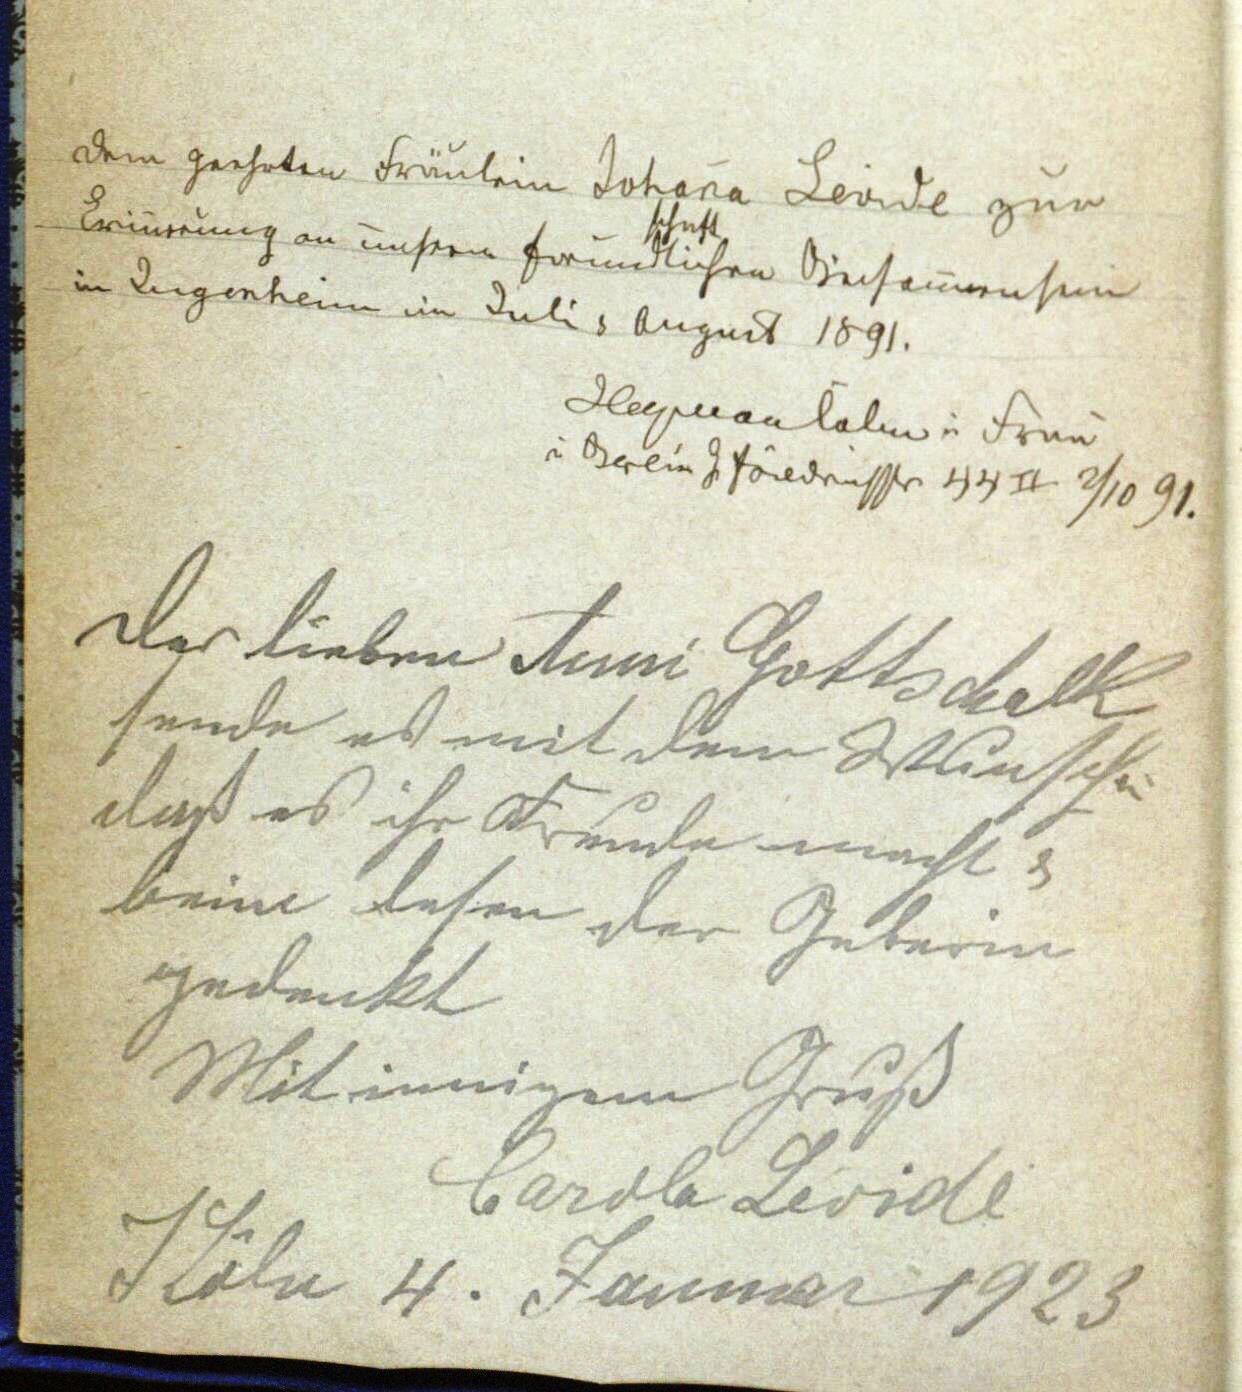 Dem geehrten Fräulein Johaña Levide zur
Erinnerung an unsern freundschaftlichen Beisamensein
in Jugenheim im Juli & August 1891.
Heymann u Frau
Berlin 44 II 2/10 91.
Der lieben Anni Gottschalk
sende es mit dem Wunsche
daß es ihr Freude macht &
beim Lesen der Geberin
gedenkt
Mit innigem Gruß
Carola Levide
Köln 4. Januar 1923